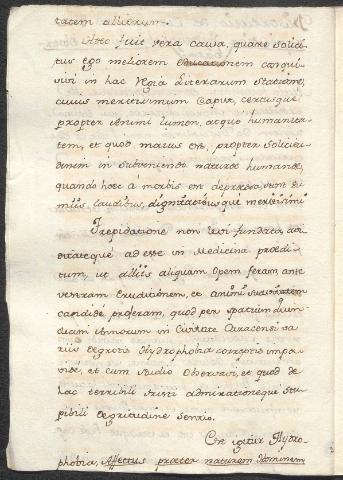 tatem allatorum.
Hæc fuit vera causa, quare solici-
tus ego meliorem educationem conqui-
sivi in hac Regia Literarum statione,
cuius meritissimum Caput, certus qui
propter animi lumen, atque humanita-
tem, et quod maius est, propter solicitu-
dinem in subveniendo naturæ humanæ,
quando hæc a morbis est depressa, sunt ei
miis laudibus, dignitatibusque meritissimi
Trepidatione non levi fundata,
citateque adesse in Medicina prædi-
tum, ut alliis aliquam Opem feram, ante
veniam Eruditionem, et animi
candidè proferam, quod per spatium
decim Annorum in Civitate Caracensi va
riis Ægrotis Hydrophobia correptis impa
vidè, et cum studio Observavi, et quod de
hac terribili tristi admirationeque stu-
pibili Ægritudine sentio.
Est igitur Hydro-
phobia, Affectus præter naturam Hominem